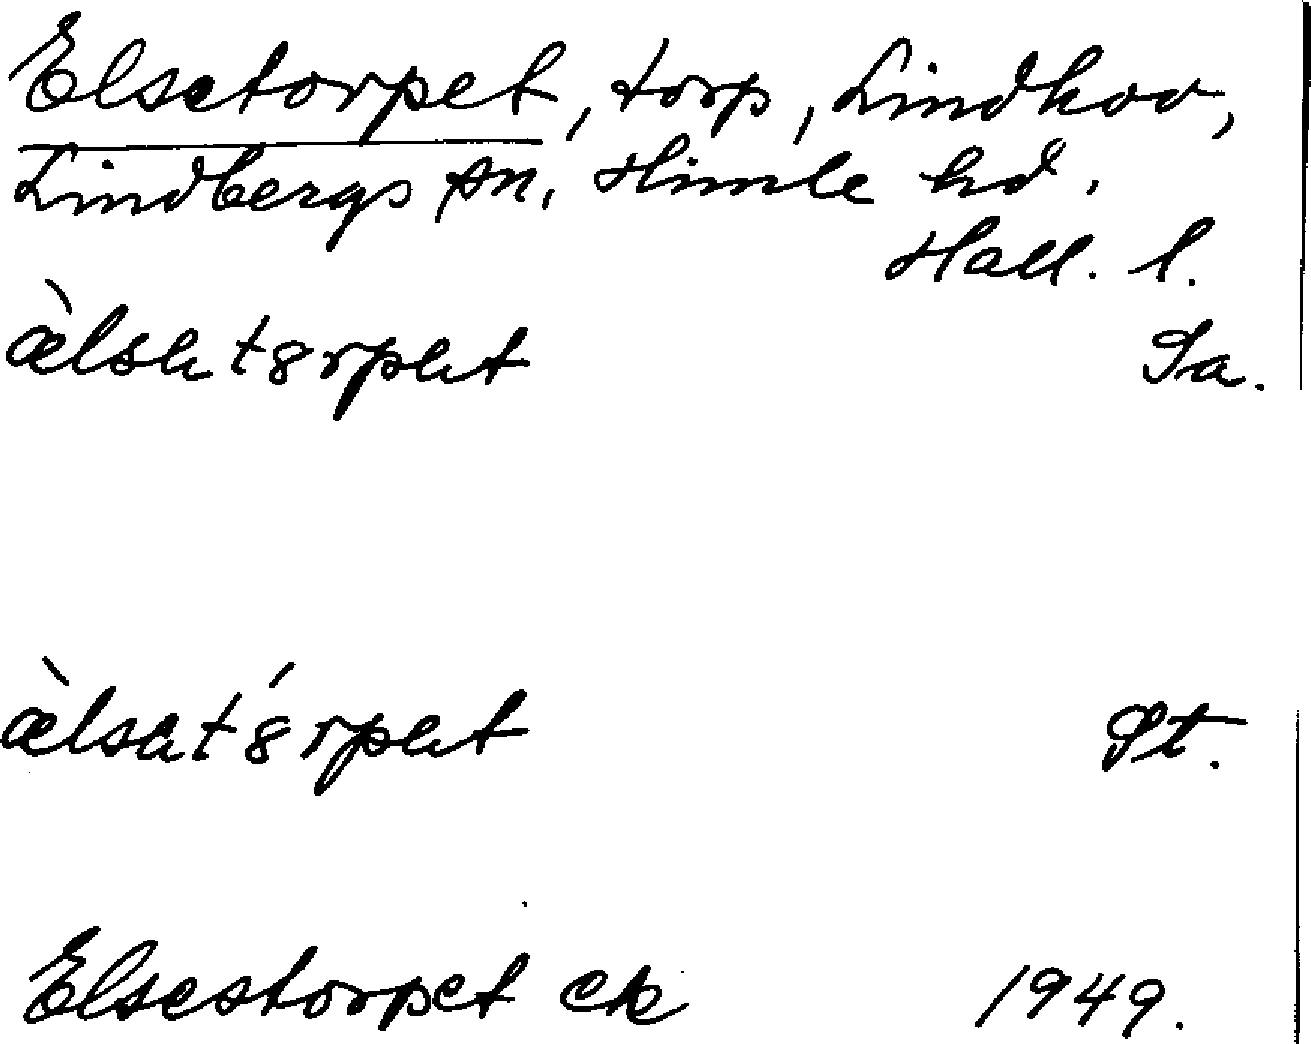 Elsetorpet, torp, Lindhov,
Lindbergs sn, Himle hd.
Hall. l.
æ̀lsatɞrpet Sa.
æ̀lsatɞ́rpet St.
Elsestorpet ek 1949.